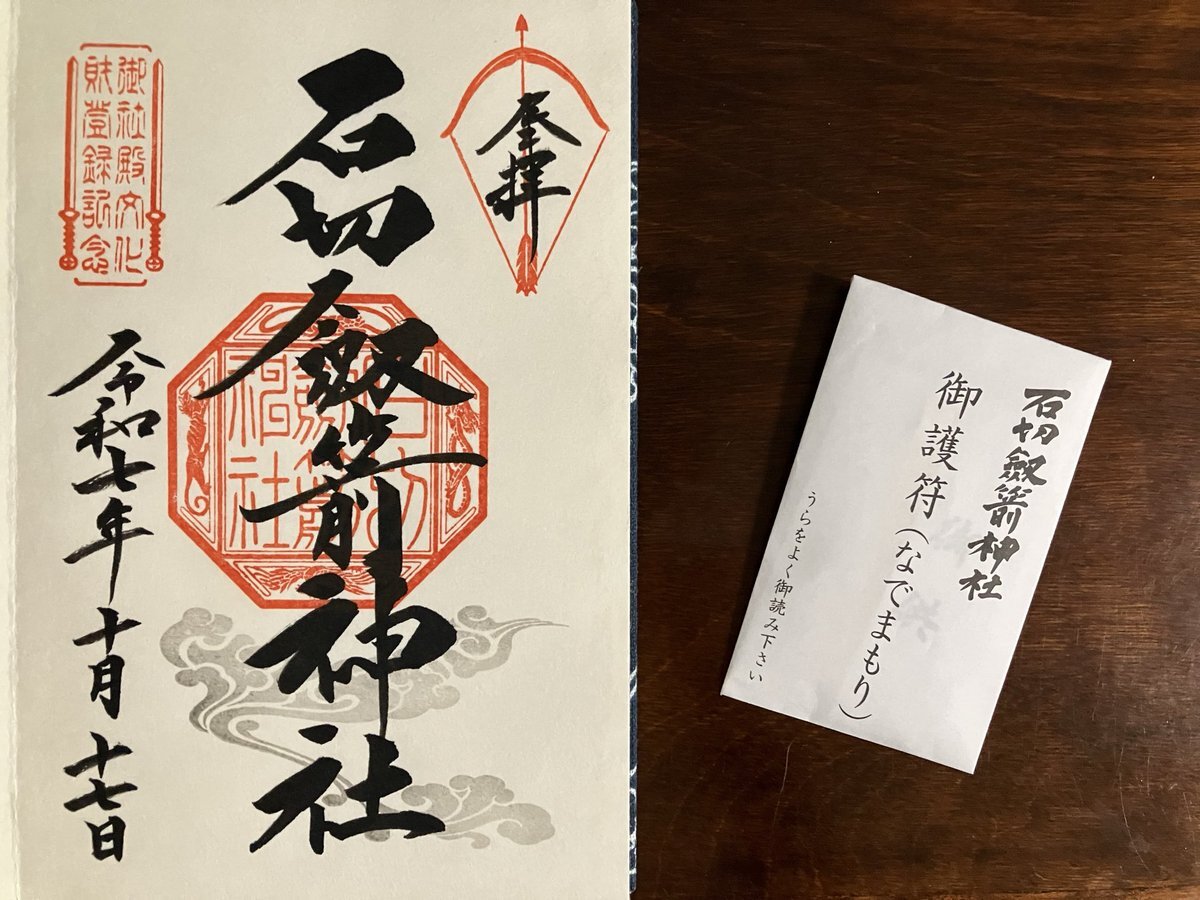 奉拝
石切劔箭神社
御社殿文化
財登録記念
令和七年十月十七日
石切劔箭神社
石切劔箭神社
御護符(なでまもり)
うらをよく御読み下さい